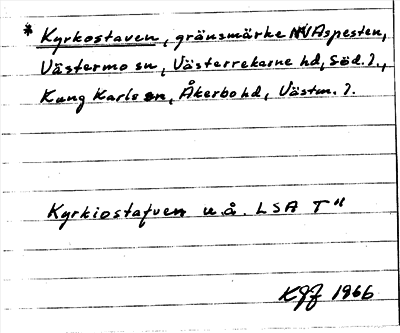 * Kyrkostaven, gränsmärke NV Aspesten,
Västermo sn, Västerrekarne hd, Söd. l.,
Kung Karls sn, Åkerbo hd, Västm. l.
Kyrkiostafven u.å. LSA T"
KGJ 1966